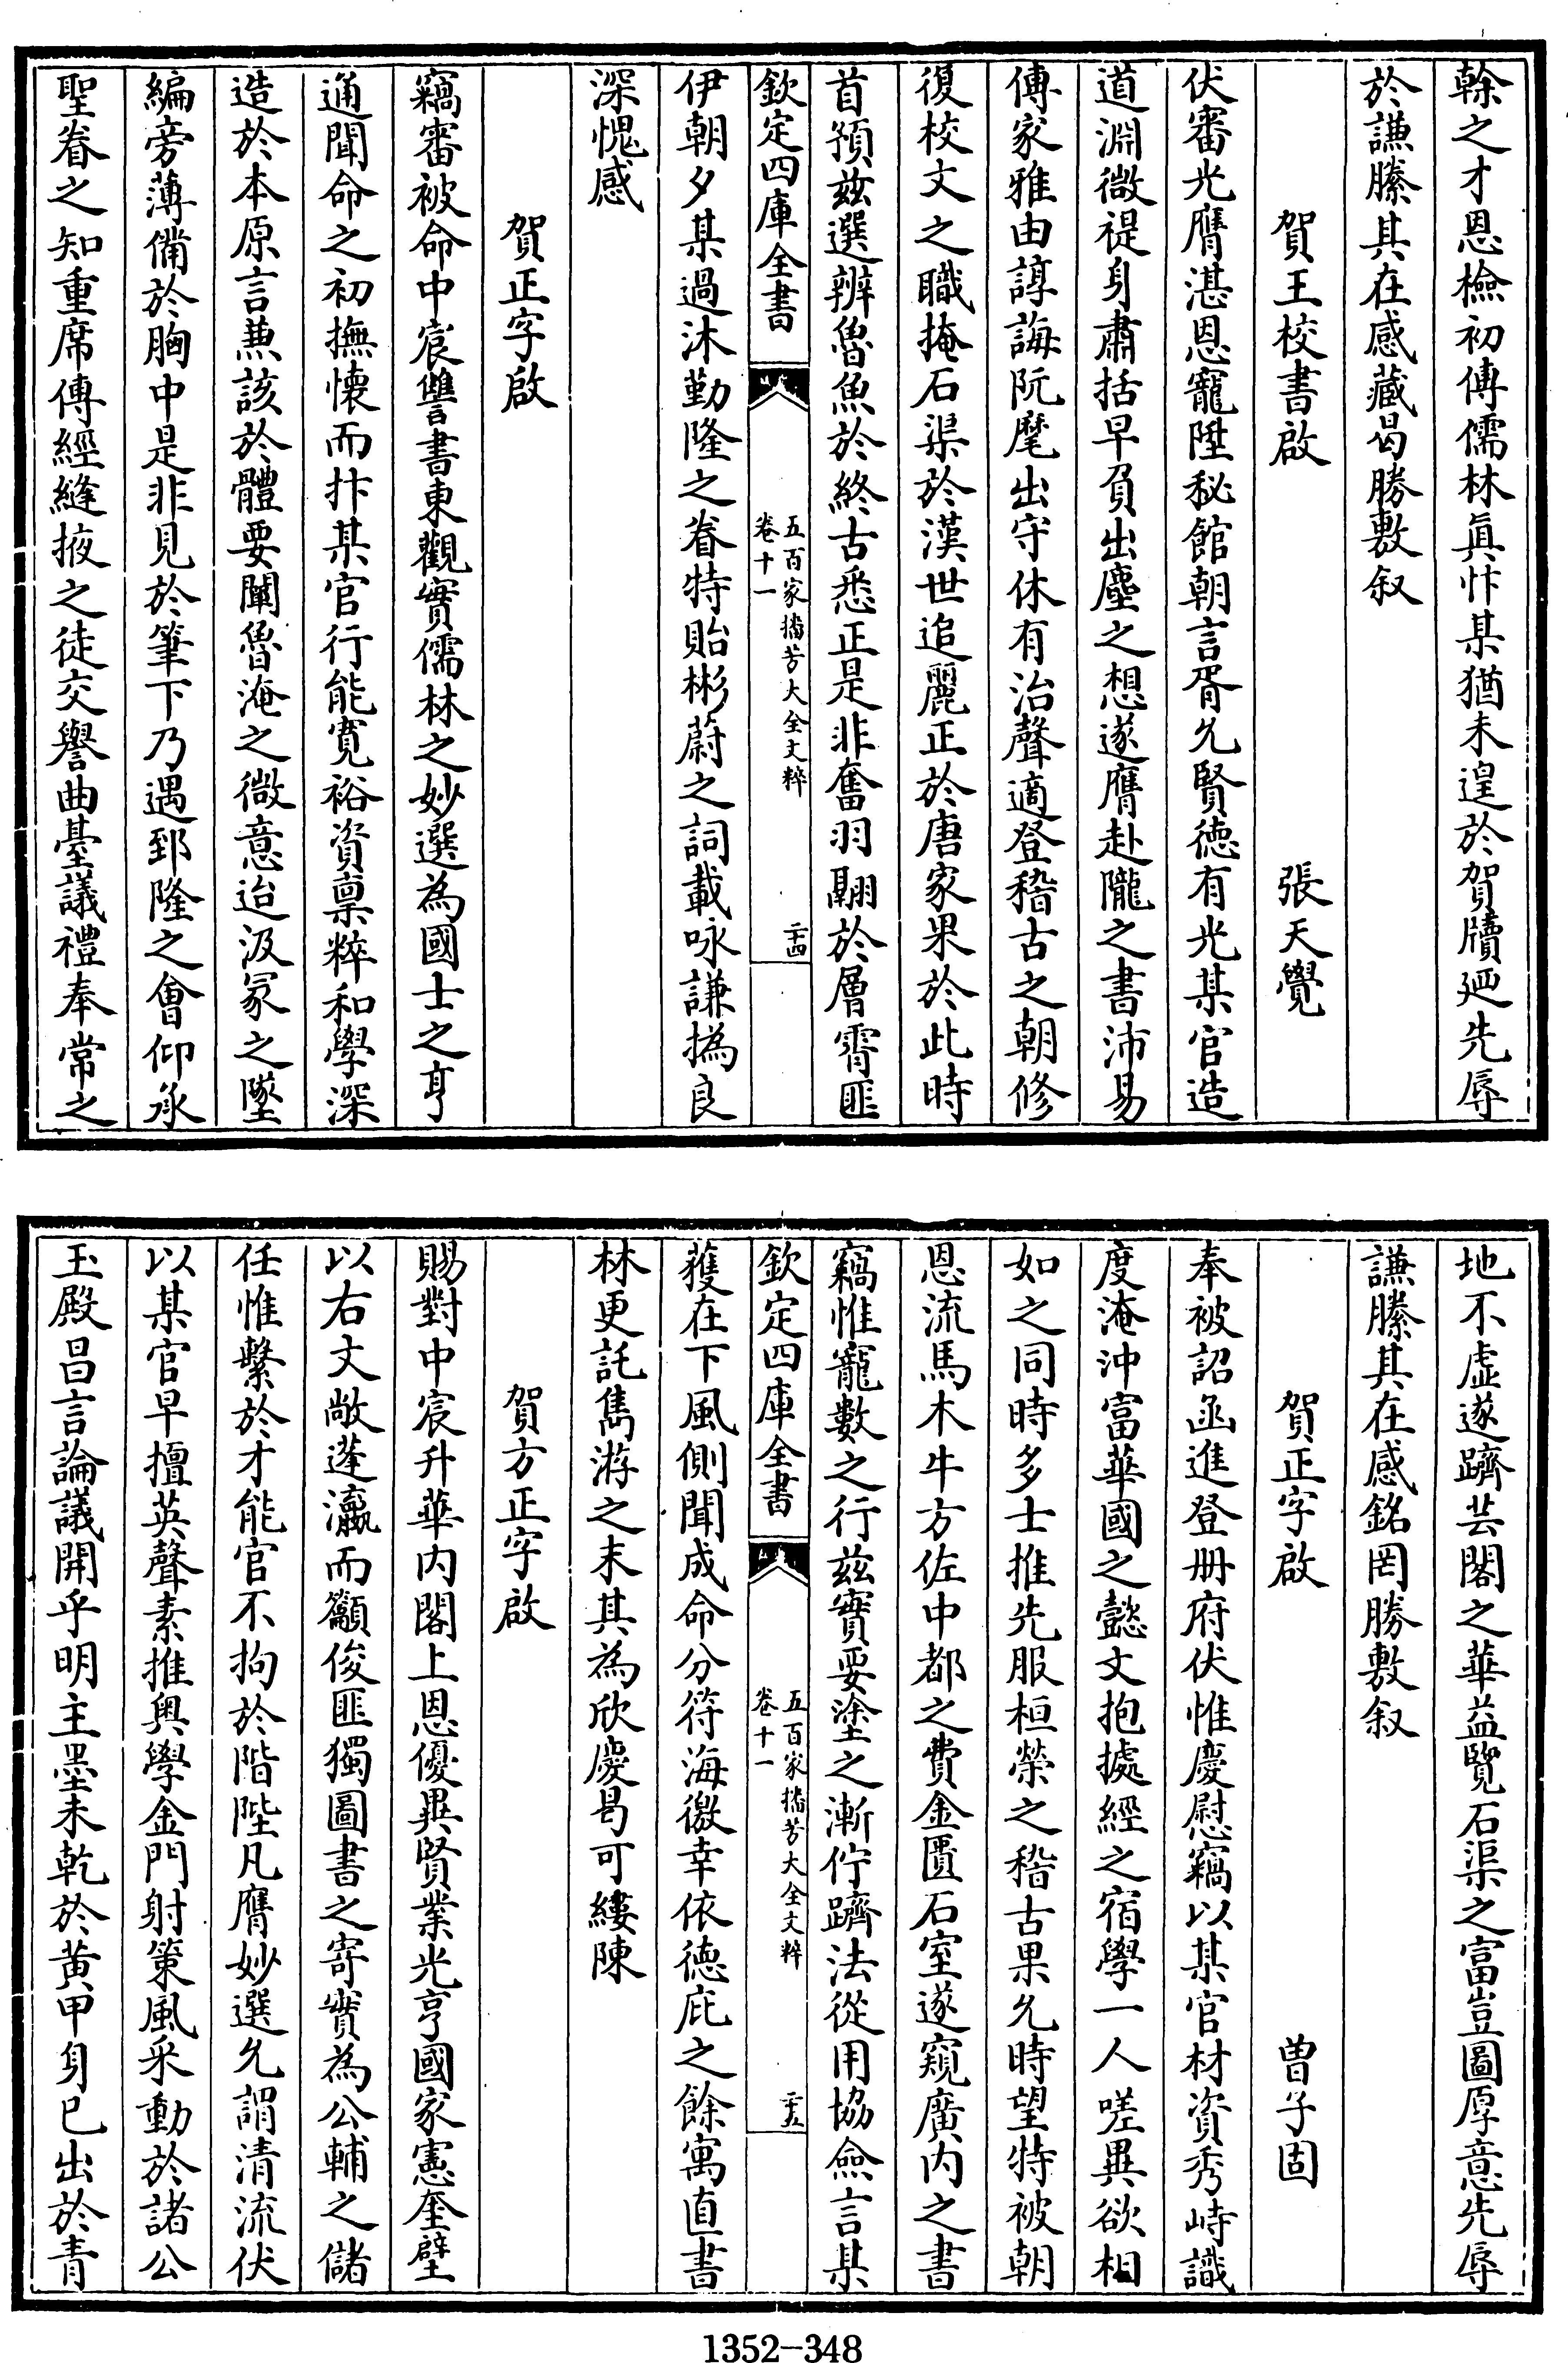 榦之才恩檢初傳儒林眞忭某猶未遑於賀牘廼先辱
於謙縢其在感藏曷勝敷叙
賀王校書啟 張天覺
伏審光膺湛恩寵陞秘館朝言胥允賢德有光某官造
道淵微禔身肅括早負出塵之想遂膺赴隴之書沛易
傅家雅由諄誨阮麾出守休有治聲適登稽古之朝修
復校文之職掩石渠於漢世追麗正於唐家果於此時
首預兹選辨魯魚於終古悉正是非奮羽翮於層霄匪
欽定四庫全書
五百家播芳大全文粹
卷十一
二十四
伊朝夕某過沐勤隆之眷特貽彬蔚之詞載咏謙撝良
深愧感
賀正字啟
竊審被命中宸讐書東觀實儒林之妙選為國士之亨
通聞命之初撫懷而抃某官行能寛裕資禀粹和學深
造於本原言兼該於體要闡魯淹之微意迨汲冢之墜
編旁薄備於胸中是非見於筆下乃遇郅隆之會仰承
聖眷之知重席傳經縫掖之徒交譽曲臺議禮奉常之
地不虛遂躋芸閣之華益覽石渠之富豈圖厚意先辱
謙縢其在感銘罔勝敷叙
賀正字啟 曾子固
奉被詔函進登册府伏惟慶慰竊以某官材資秀峙識
度淹沖富華國之懿文抱據經之宿學一人嗟異欲相
如之同時多士推先服桓榮之稽古果允時望特被朝
恩流馬木牛方佐中都之費金匱石室遂窺廣内之書
竊惟寵數之行兹實要塗之漸佇躋法從用協僉言某
欽定四庫全書
五百家播芳大全文粹
卷十一
二十五
獲在下風側聞成命分符海徼幸依德庇之餘寓直書
林更託雋游之末其為欣慶曷可縷陳
賀方正字啟
賜對中宸升華内閣上恩優異賢業光亨國家憲奎壁
以右文敞蓬瀛而籲俊匪獨圖書之寄實為公輔之儲
任惟繫於才能官不拘於階陛凡膺妙選允謂清流伏
以某官早擅英聲素推奥學金門射策風采動於諸公
玉殿昌言論議開乎明主墨未乾於黄甲身已出於青
1352-348